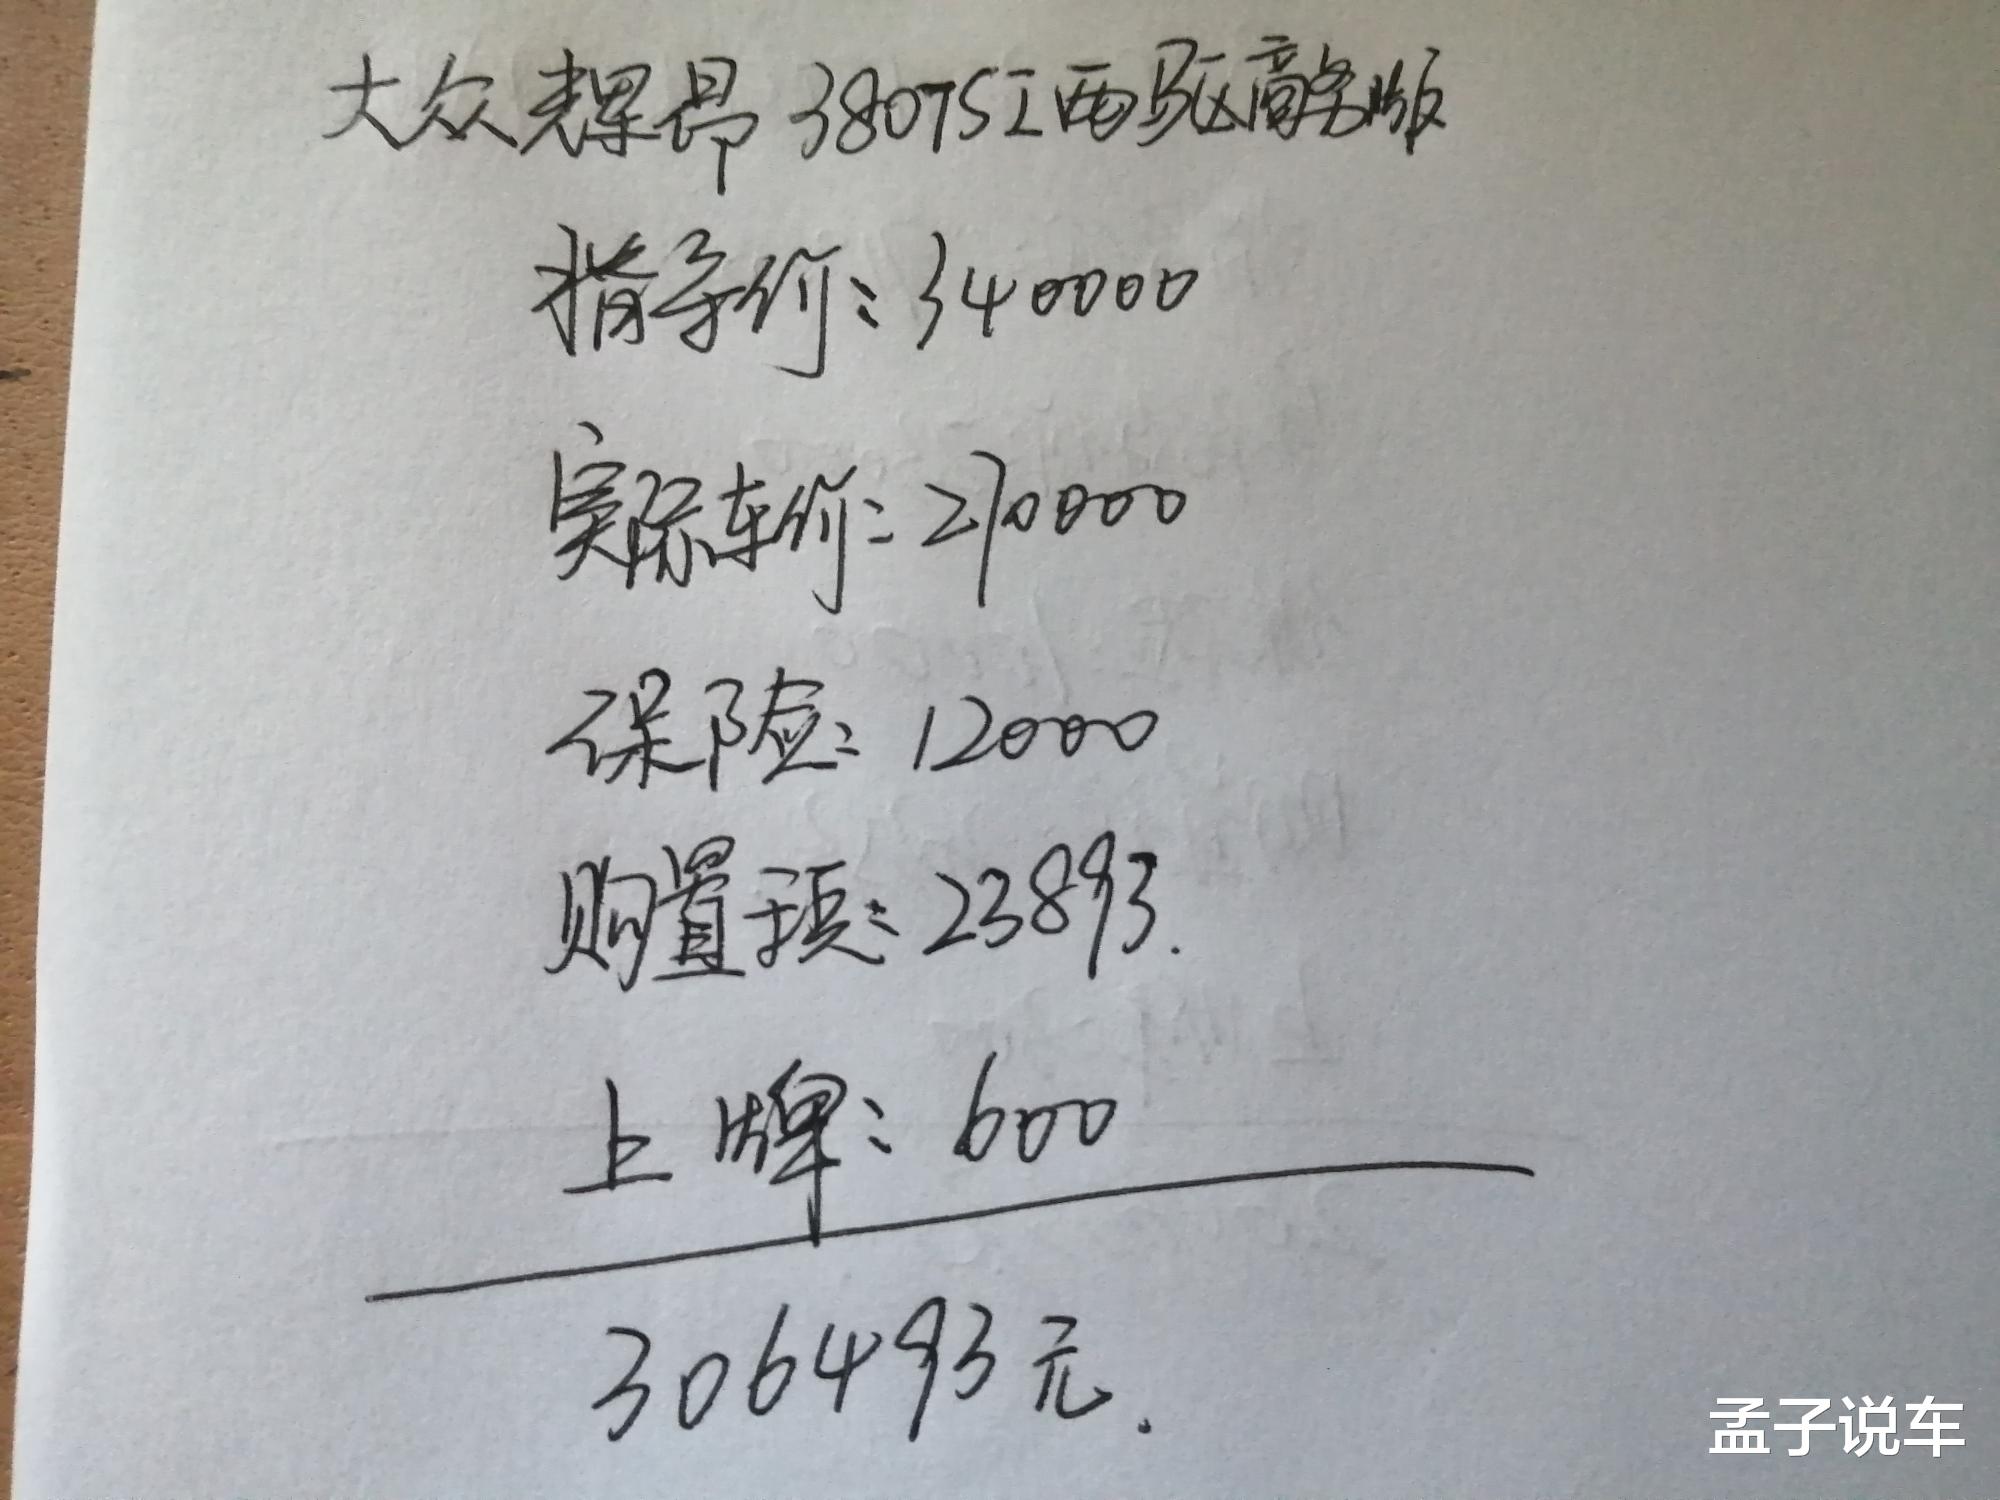 大众辉昂380TSI两驱商务版
指导价：340000
实际车价：270000
保险：12000
购置税：23893.
上牌：600
306493元.
孟子说车